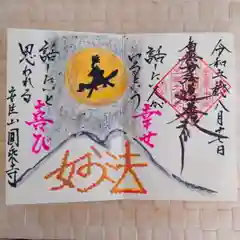 令和六歳八月十七日
南無妙法蓮華経
話したい人が
いるという
幸せ
話したいと
思われる
喜び
圓乗寺
妙法